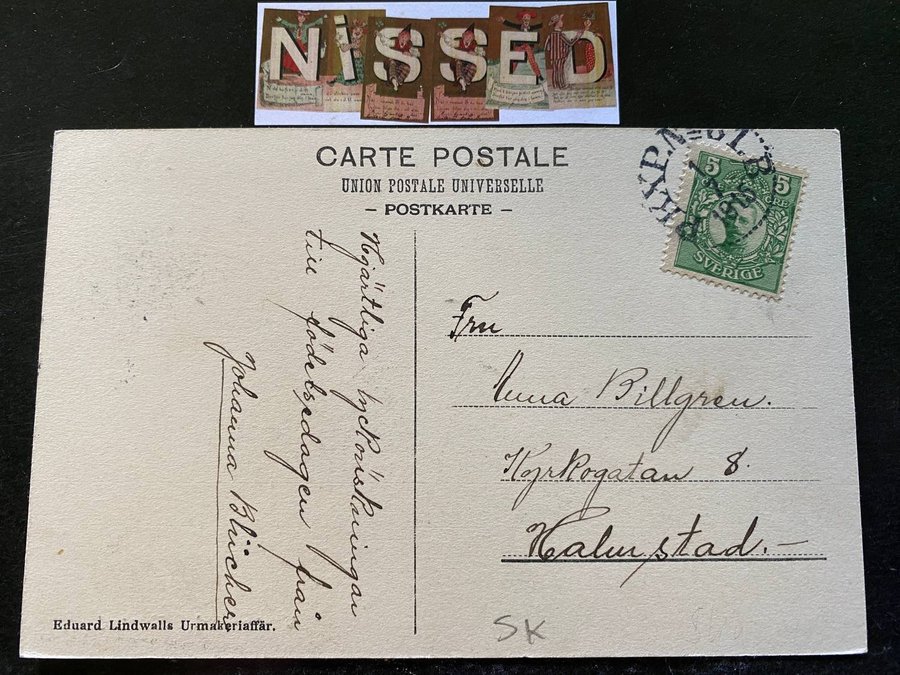 NISSED
CARTE POSTALE
UNION POSTALE UNIVERSELLE
– POSTKARTE –
5 5
ÖRE
SVERIGE
Hjärtliga lyckönskningar
till födelsedagen från
Johanna Blücher
Fru
Anna Billgren.
Kyrkogatan 8.
Halmstad.–
Eduard Lindwalls Urmakeriaffär.
SK